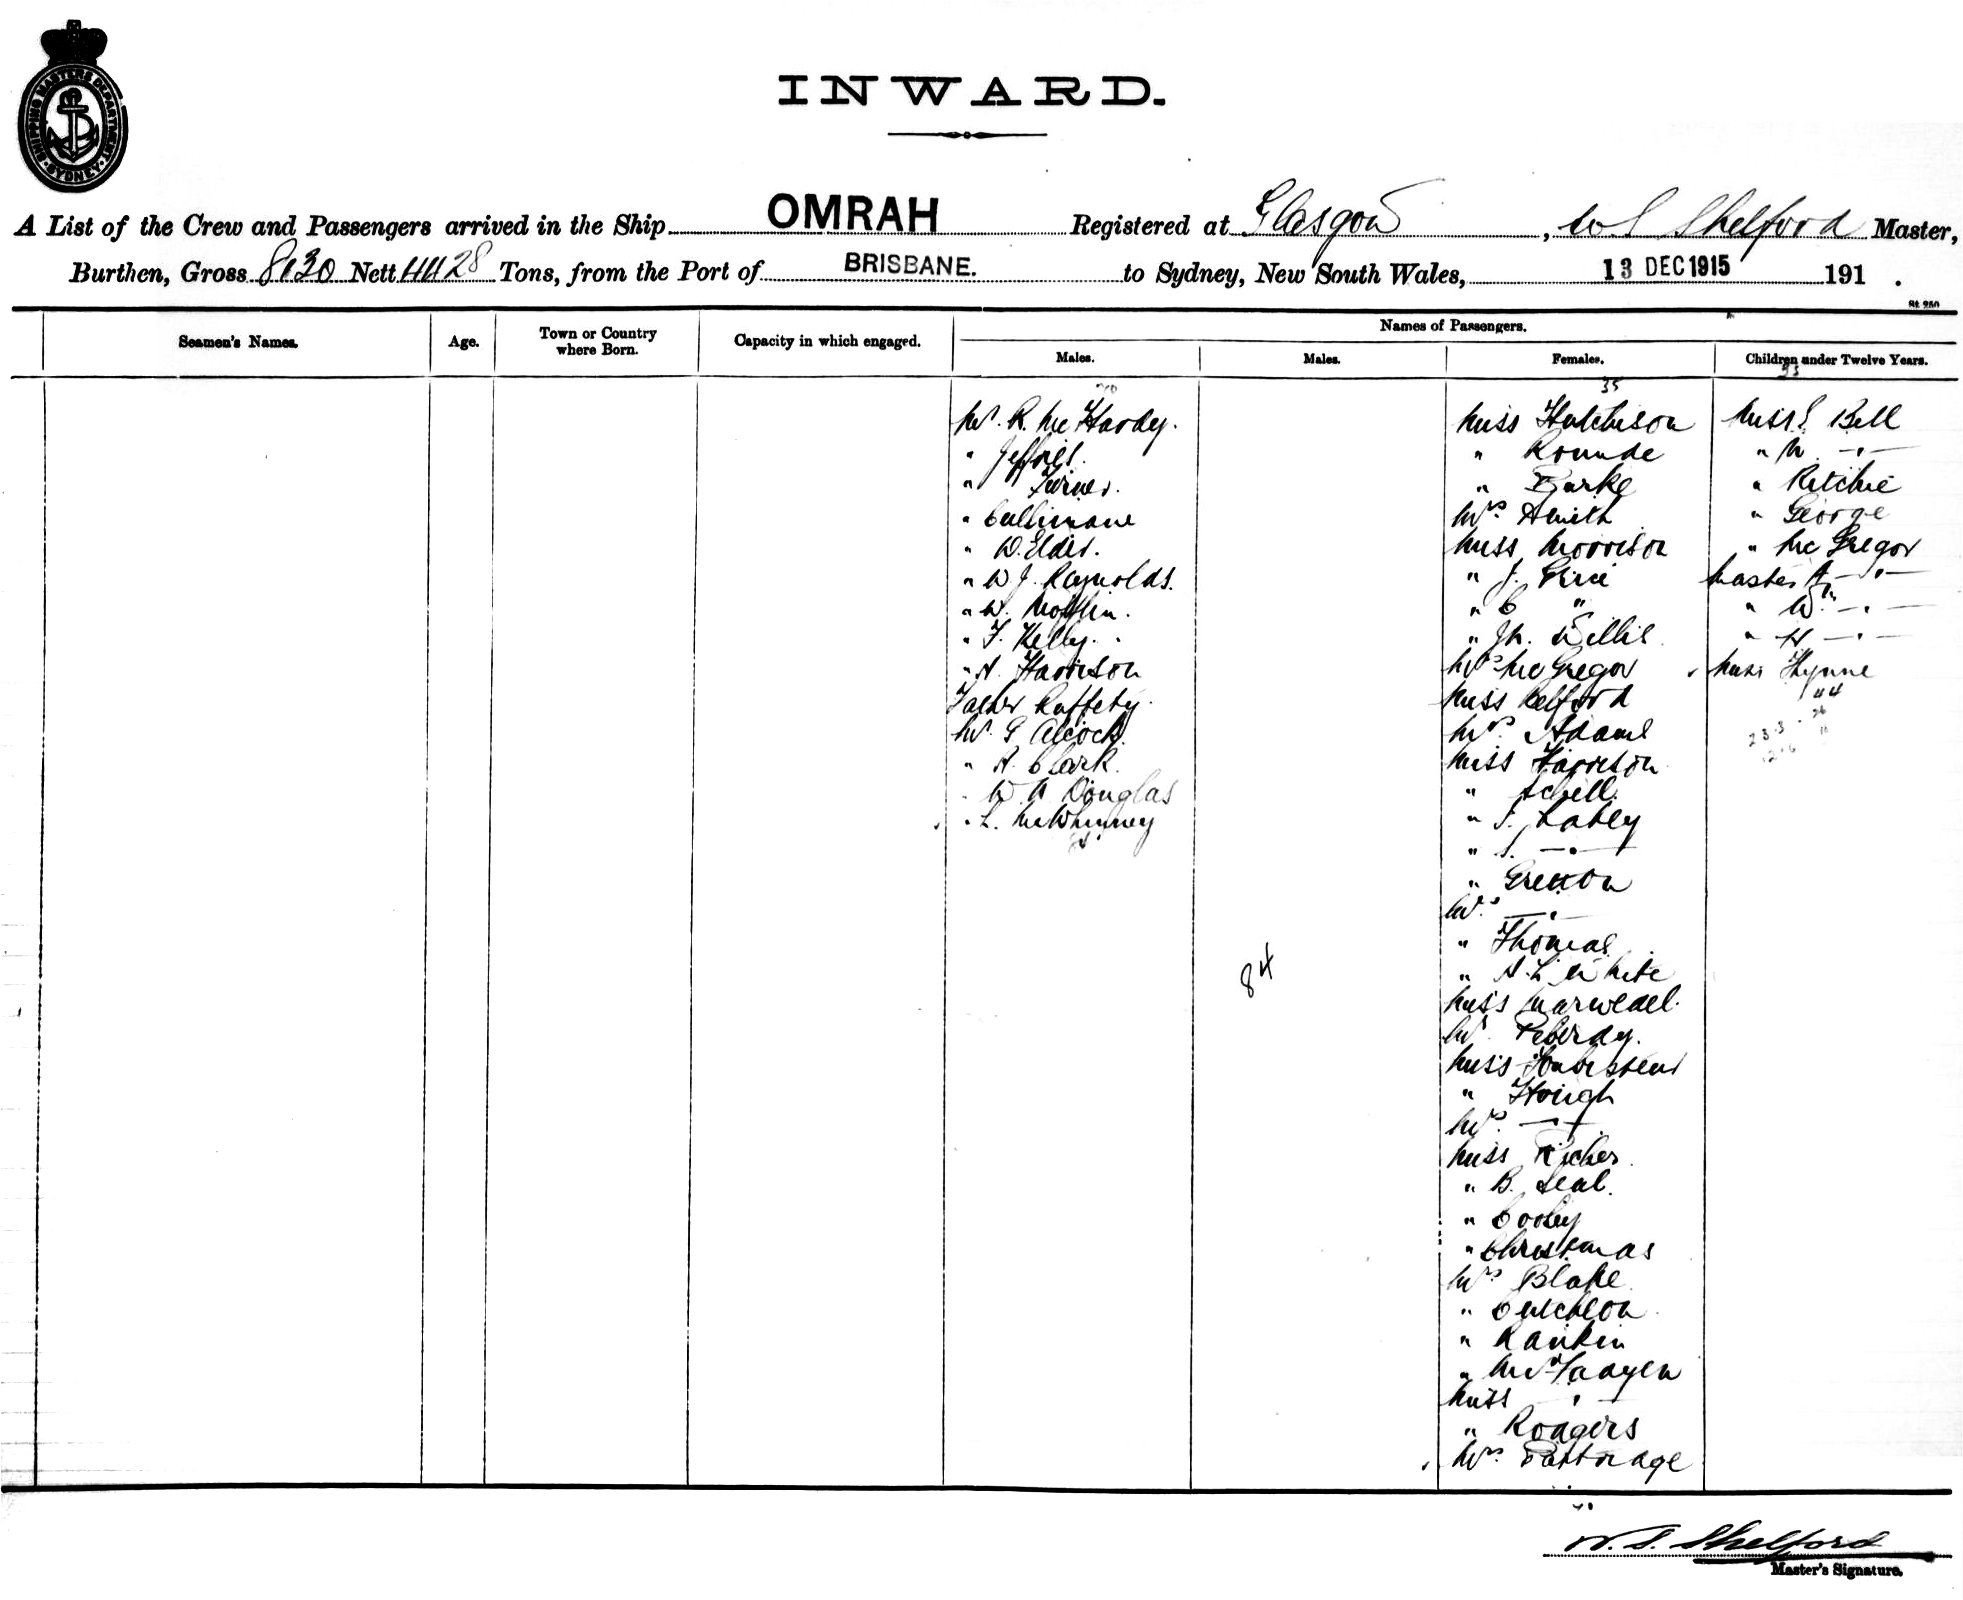 SHIPPING MASTERS DEPARTMENT · SYDNEY ·
INWARD.
A List of the Crew and Passengers arrived in the Ship OMRAH Registered at Glasgow, W S Shelford Master,
Burthen, Gross 8130 Nett 4428 Tons, from the Port of BRISBANE. to Sydney, New South Wales, 13 DEC 1915 191 .
St 250
Seamen's Names.
Age.
Town or Country
where Born.
Capacity in which engaged.
Names of Passengers.
Males.
Males.
Females.
Children under Twelve Years.
Mr. R. McHardy.
" Jeffries.
" Turner.
" Cullimane
" W. Elder.
" W. J. Reynolds.
" W. Mofflin.
" F. Kelly.
" A. Harrison
Father Raffety.
Mr. G Alcock.
" A. Clark.
" W A Douglas
" L. McWhinney
84
35
Miss Hutchison
" Rounde
" Burke
Mrs Smith
Miss Morrison
" J. Price
" C "
" Willis
Mrs McGregor
Miss Relford
Mrs. Adams
Miss Harrison
" Schell.
" F. Lahey
" S. — " —
" Gretton
Mrs. — " —
" Thomas
" A. L. White
Miss Marwedel.
Peberdy.
Miss
" Hough
Mrs. — " —
Miss Richer
" B. Seal.
" Cooley
" Christmas
Mrs Blake
" Cutcheon
" Rankin
" McFadyen
Miss "
" Rodgers
Mrs. Partridge
Miss E Bell
" M — " —
" Ritchie
" George
" McGregor
Master A — " —
" W — " —
" H — " —
Miss Flynne
W. S. Shelford
Master's Signature.